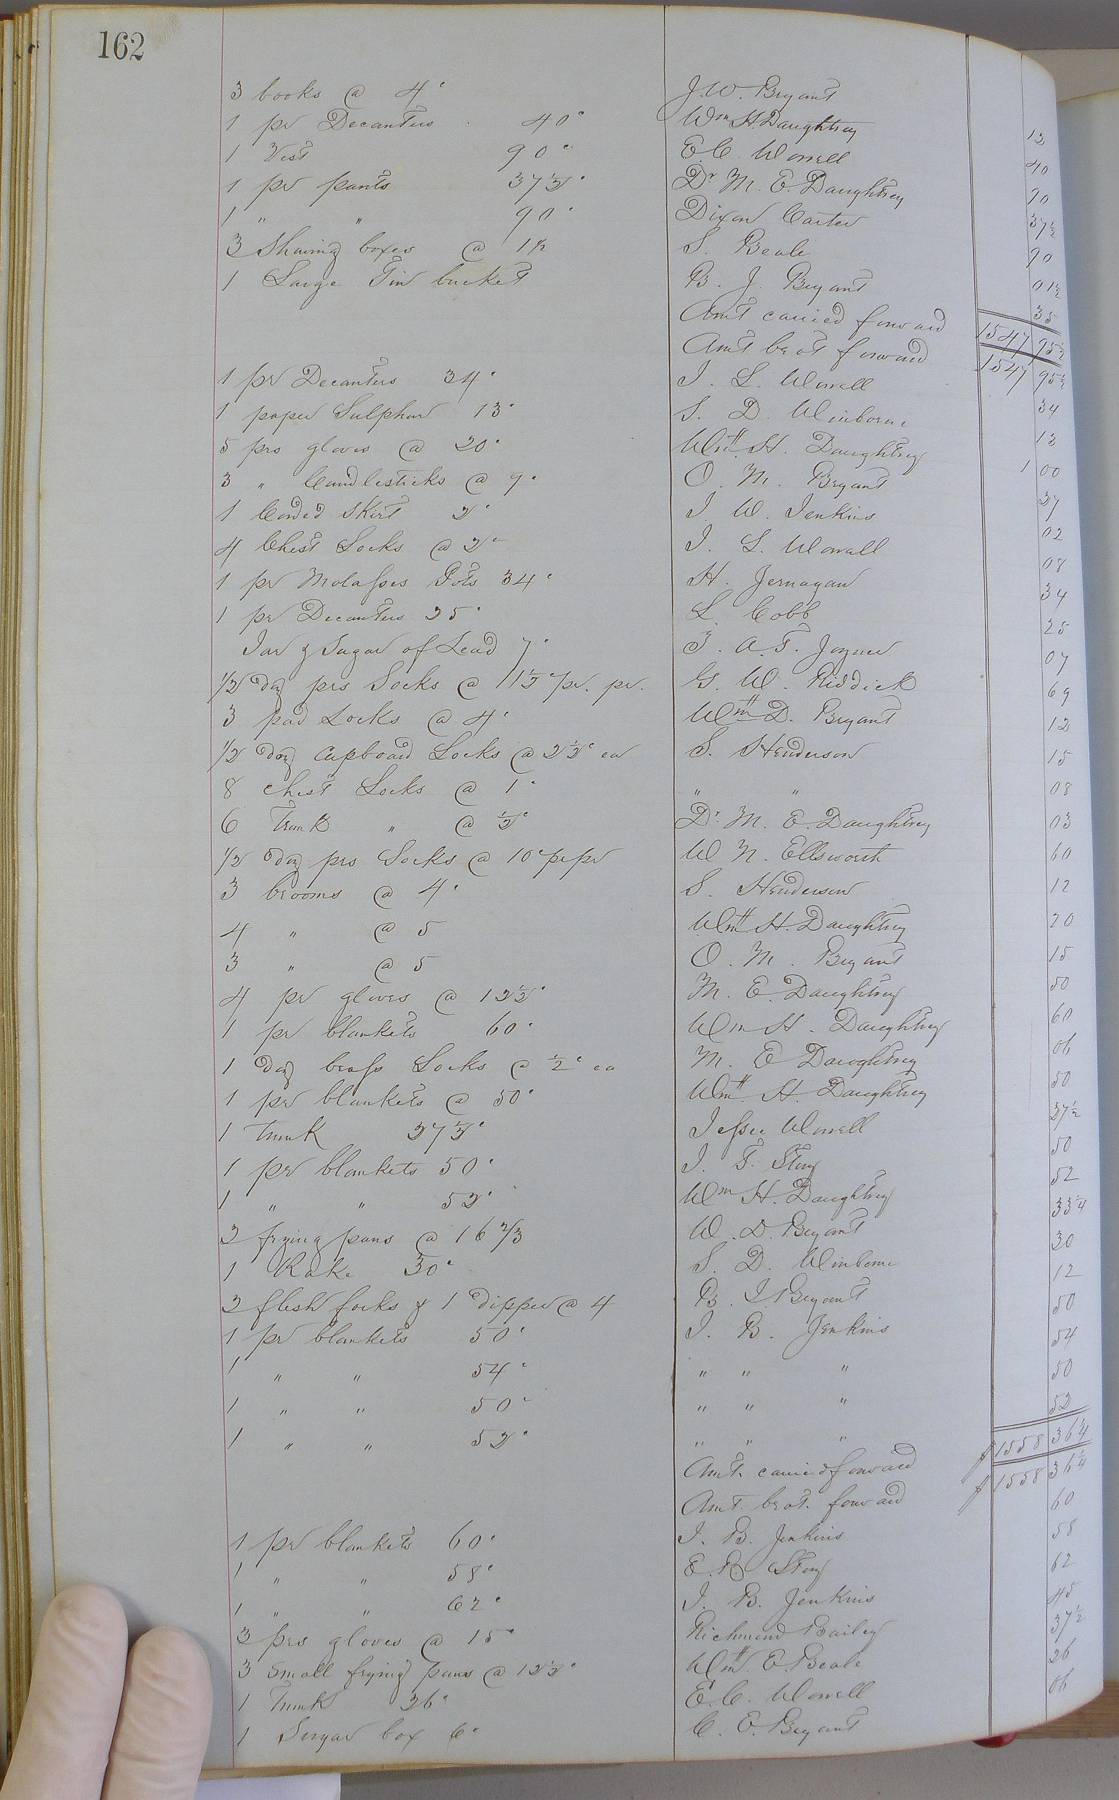 162
3 books @ 4c J. W. Bryant 12
1 pr Decanters 40c Wm H. Daughtrey 40
1 Vest 90c E. C. Worrell 90
1 pr pants 37½c Dr M. E. Daughtrey 37½
1 " " 90c Dixon Carter 90
3 Shaving boxes @ 1/2 S. Beale 01½
1 Large Tin bucket B. J. Bryant 35
Amt carried forward 1547 95½
Amt brot forward 1547 95½
1 pr Decanters 34c J. L. Worrell 34
1 paper Sulphur 13c S. D. Winborne 13
5 prs gloves @ 20c Wm H. Daughtrey 1 00
3 " Candlesticks @ 9c O. M. Bryant 27
1 Corded Skirt 2c J. W. Jenkins 02
4 Chest Locks @ 2c J. L. Worrall 08
1 pr Molasses Pots 34c H. Jernagan 34
1 pr Decanters 25c L. Cobb 25
Jar of Sugar of Lead 7c T. A. T. Joyner 07
1/2 doz prs Socks @ 11½c pr. pr. G. W. Riddick 69
3 pad Locks @ 4c Wm D. Bryant 12
1/2 doz Cupboard Locks @ 2½c ea S. Henderson 15
8 chest Locks @ 1c " " 08
6 Trunk " @ ½c Dr. M. E. Daughtrey 03
1/2 doz prs Socks @ 10c pr pr W. N. Ellsworth 60
3 brooms @ 4c S. Henderson 12
4 " @ 5 Wm H. Daughtrey 20
3 " @ 5 O. M. Bryant 15
4 pr gloves @ 12½c M. E. Daughtrey 50
1 pr blankets 60c Wm H. Daughtrey 60
1 doz brass Locks @ ½c ea M. E Daughtrey 06
1 pr blankets @ 50c Wm H Daughtrey 50
1 Trunk 37½c Jesse Worrell 37½
1 pr blankets 50c J. T. Story 50
1 " " 52c Wm H. Daughtrey 52
2 frying pans @ 16 2/3 W. D. Bryant 33¼
1 Rake 30c S. D. Winborne 30
2 flesh forks & 1 dipper @ 4 B. J. Bryant 12
1 pr blankets 50c J. B. Jenkins 50
1 " " 54c " " " 54
1 " " 50c " " " 50
1 " " 52c " " " 52
Amt. carried forward $1558 36¼
Amt brot. forward $1558 36¼
1 pr blankets 60c J. B. Jenkins 60
1 " " 58c E. R. Story 58
1 " " 62c J. B. Jenkins 62
3 prs gloves @ 15c Richmond Bailey 45
3 Small frying pans @ 12½c Wm E. Beale 37½
1 Trunk 26c E. C. Worrell 26
1 Sugar box 6c C. E. Bryant 06